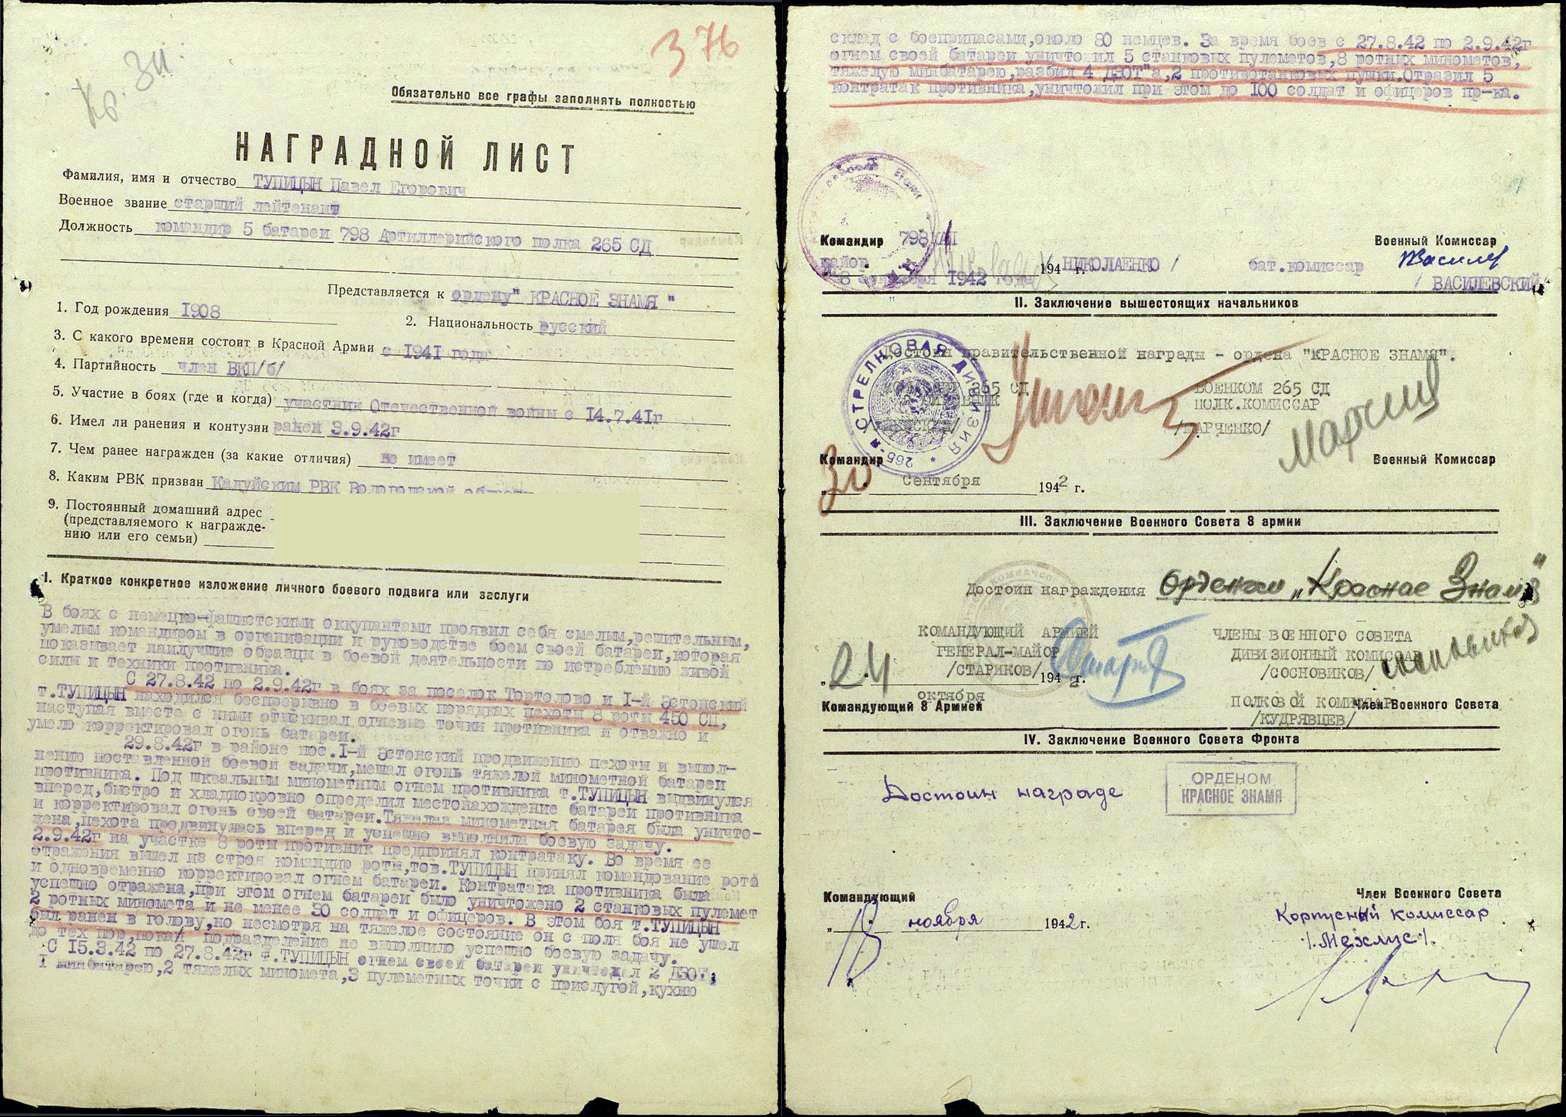 Кр. Зн.
376
Обязательно все графы заполнять полностью
НАГРАДНОЙ ЛИСТ
Фамилия, имя и отчество ТУПИЦЫН Павел Егорович
Военное звание старший лейтенант
Должность командир 5 батареи 798 Артиллерийского полка 265 СД
Представляется к ордену" КРАСНОЕ ЗНАМЯ "
1. Год рождения 1908
2. Национальность русский
3. С какого времени состоит в Красной Армии с 1941 года
4. Партийность член ВКП/б/
5. Участие в боях (где и когда) участник Отечественной войны с 14.7.41г
6. Имел ли ранения и контузии ранен 3.9.42г
7. Чем ранее награжден (за какие отличия) не имеет
8. Каким РВК призван Кадуйским РВК Вологодской области
9. Постоянный домашний адрес
(представляемого к награжде-
нию или его семьи)
I. Краткое конкретное изложение личного боевого подвига или заслуги
В боях с немецко-фашистскими оккупантами проявил себя смелым,решительным,
умелым командиром в организации и руководстве боем своей батареи,которая
показывает наилучшие образцы в боевой деятельности по истреблению живой
силы и техники противника.
С 27.8.42 по 2.9.42г в боях за поселок Тортолово и 1-й Эстонский
т.ТУПИЦЫН находился беспрерывно в боевых порядках пехоты 8 роты 450 СП,
наступая вместе с ними отыскивал огневые точки противника и отважно и
умело корректировал огонь батареи.
29.8.42г в районе пос.1-й Эстонский продвижению пехоты и выпол-
нению поставленной боевой задачи,мешал огонь тяжелой минометной батареи
противника. Под шквальным минометным огнем противника т.ТУПИЦЫН выдвинулся
вперед,быстро и хладнокровно определил местонахождение батареи противника
и корректировал огонь своей батареи.Тяжелая минометная батарея была уничто-
жена,пехота продвинулась вперед и успешно выполнила боевую задачу.
2.9.42г на участке 8 роты противник предпринял контратаку. Во время ее
отражения вышел из строя командир роты,тов.ТУПИЦЫН принял командование рота
и одновременно корректировал огнем батареи. Контратака противника была
успешно отражена,при этом огнем батареи было уничтожено 2 станковых пулемет
2 ротных миномета и не менее 30 солдат и офицеров. В этом бою т.ТУПИЦЫН
был ранен в голову,но несмотря на тяжелое состояние он с поля боя не ушел
до тех пор,пока подразделение не выполнило успешно боевую задачу.
С 15.3.42 по 27.8.42г т.ТУПИЦЫН огнем своей батареи уничтожил 2 ДЗОТ,
1 минбатарею,2 тяжелых миномета,3 пулеметных точки с прислугой,кухню
склад с боеприпасами,около 80 немцев. За время боев с 27.8.42 по 2.9.42г
огнем своей батареи уничто ил 5 станковых пулеметов,8 ротных минометов,
тяжелую минбатарею,разбил 4 ДЗОТ"а,2 противотанковых пушки.Отразил 5
контратак противника,уничтожил при этом до 100 солдат и офицеров пр-ка.
Командир 798 АП
Военный Комиссар
майор /НИКОЛАЕНКО/
бат.комиссар
194 г.
8 1942 года
/ВАСИЛЕВСКИЙ/
II. Заключение вышестоящих начальников
Достоин правительственной награды - ордена "КРАСНОЕ ЗНАМЯ".
265 СД
ВОЕНКОМ 265 СД
ПОЛК.КОМИССАР
/МАРЧЕНКО/
265я СТРЕЛКОВАЯ ДИВИЗИЯ
Командир
Военный Комиссар
„30 Сентября 1942 г.
III. Заключение Военного Совета 8 армии
Достоин награждения Орденом „Красное Знамя"
КОМАНДУЮЩИЙ АРМИЕЙ
ГЕНЕРАЛ-МАЙОР
/СТАРИКОВ/
ЧЛЕНЫ ВОЕННОГО СОВЕТА
ДИВИЗИОННЫЙ КОМИССАР
/СОСНОВИКОВ/
„24 октября 1942 г.
ПОЛКОВОЙ КОМИССАР
/КУДРЯВЦЕВ/
Командующий 8 Армией
Член Военного Совета
IV. Заключение Военного Совета Фронта
Достоин награде
ОРДЕНОМ
КРАСНОЕ ЗНАМЯ
Командующий
Член Военного Совета
Корпусный комиссар
/Мехлис/.
„13 ноября 1942г.